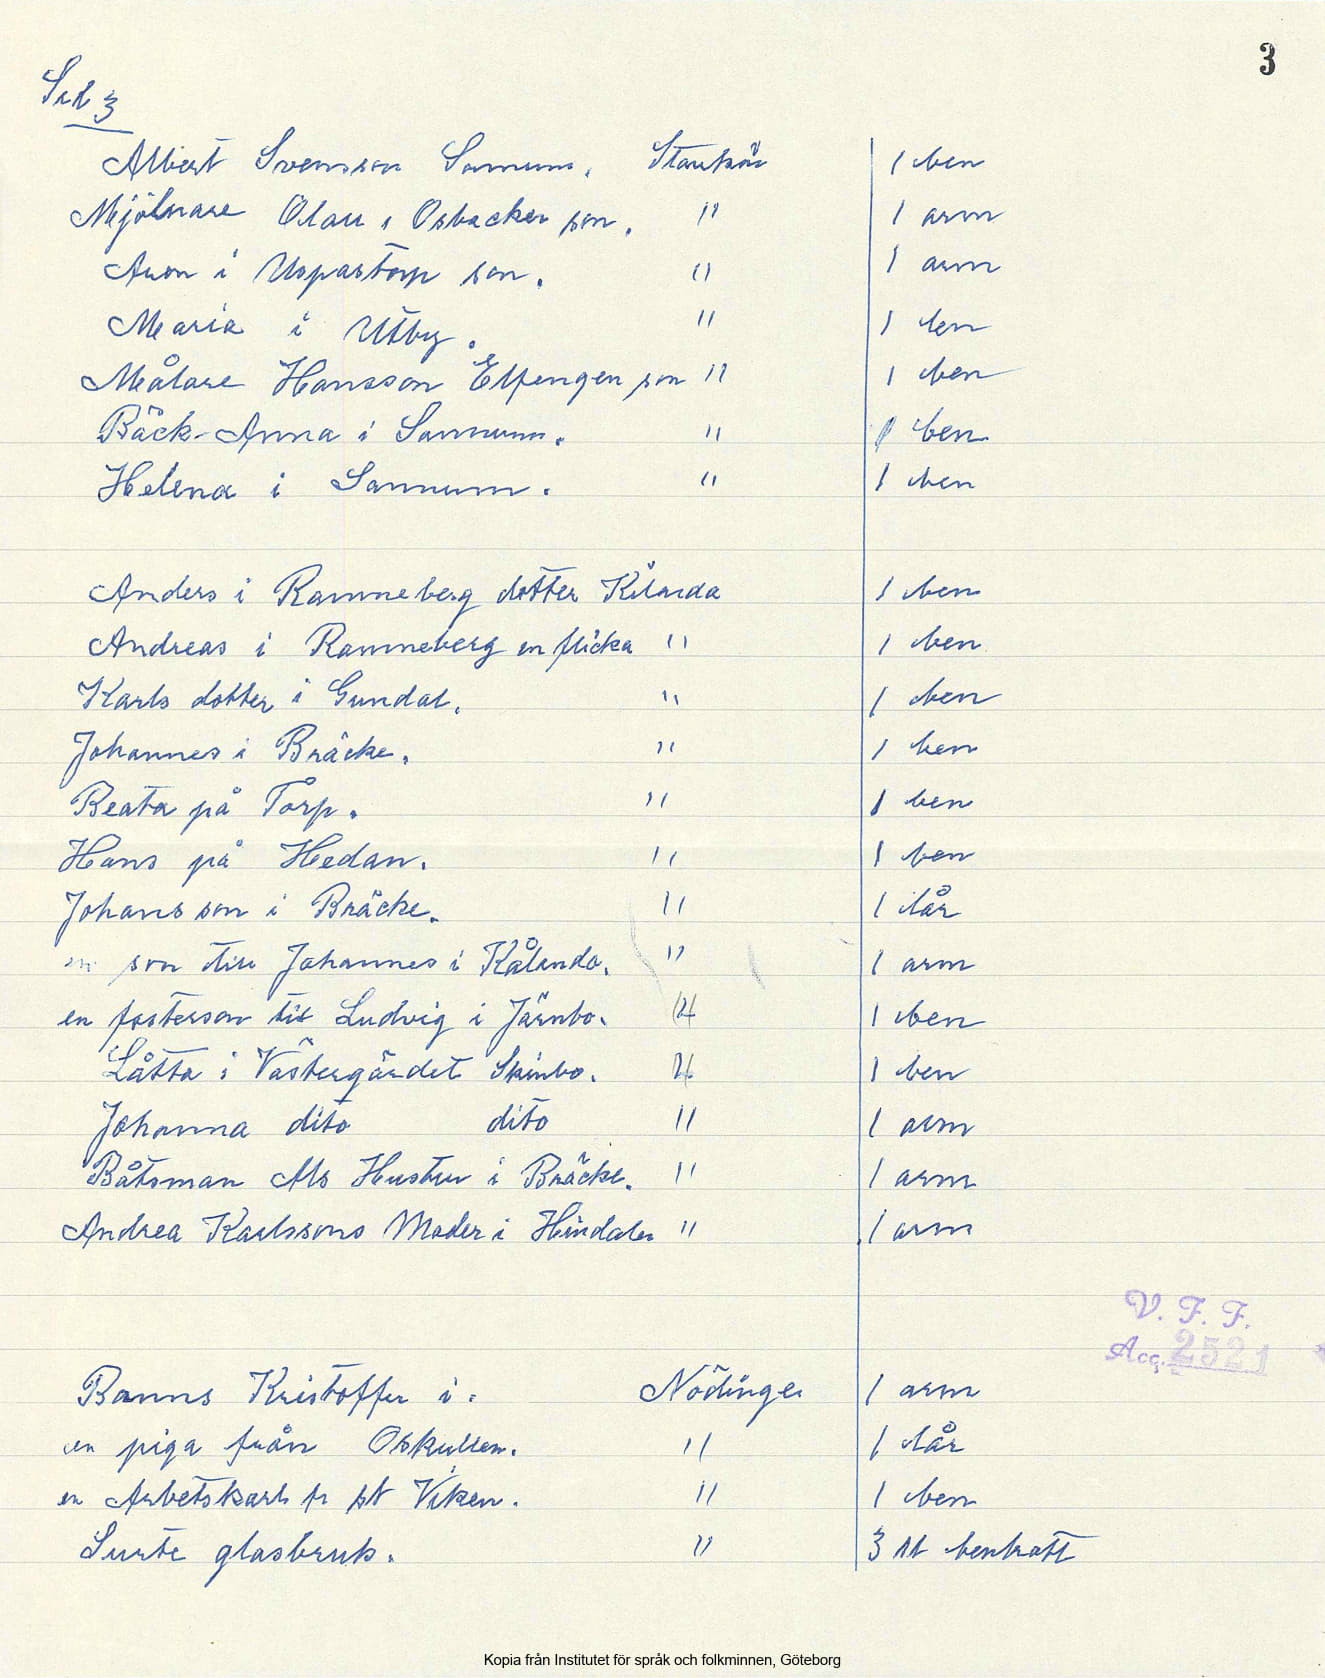 3
Sid 3
Albert Svensson Sannum. Starrkärr 1 ben
Mjölnare Olau i Osbacken son. " 1 arm
Aron i Uspastorp son. " 1 arm
Maria i Utby. " 1 ben
Målare Hansson Elfengen son " 1 ben
Bäck-Anna i Sannum. " 1 ben
Helena i Sannum. " 1 ben
Anders i Ramneberg dotter Kilanda 1 ben
Andreas i Ramneberg en flicka " 1 ben
Karls dotter i Grundal. " 1 ben
Johannes i Bräcke. " 1 ben
Beata på Torp. " 1 ben
Hans på Hedan. " 1 ben
Johans son i Bräcke. " 1 lår
en son till Johannes i Kålanda. " 1 arm
en fosterson till Ludvig i Järnbo. " 1 ben
Låtta i Västergärdet Skinbo. " 1 ben
Johanna dito dito " 1 arm
Båtsman Als Hustru i Bräcke. " 1 arm
Andrea Karlssons Moder i Hindalen " 1 arm
V. F. F.
Acc. 2521
Banns Kristoffer i. Nödinge 1 arm
en piga från Oskullen. " 1 lår
en Arbetskarl fr st Viken. " 1 ben
Surte glasbruk. " 3 st benbrott
Kopia från Institutet för språk och folkminnen, Göteborg